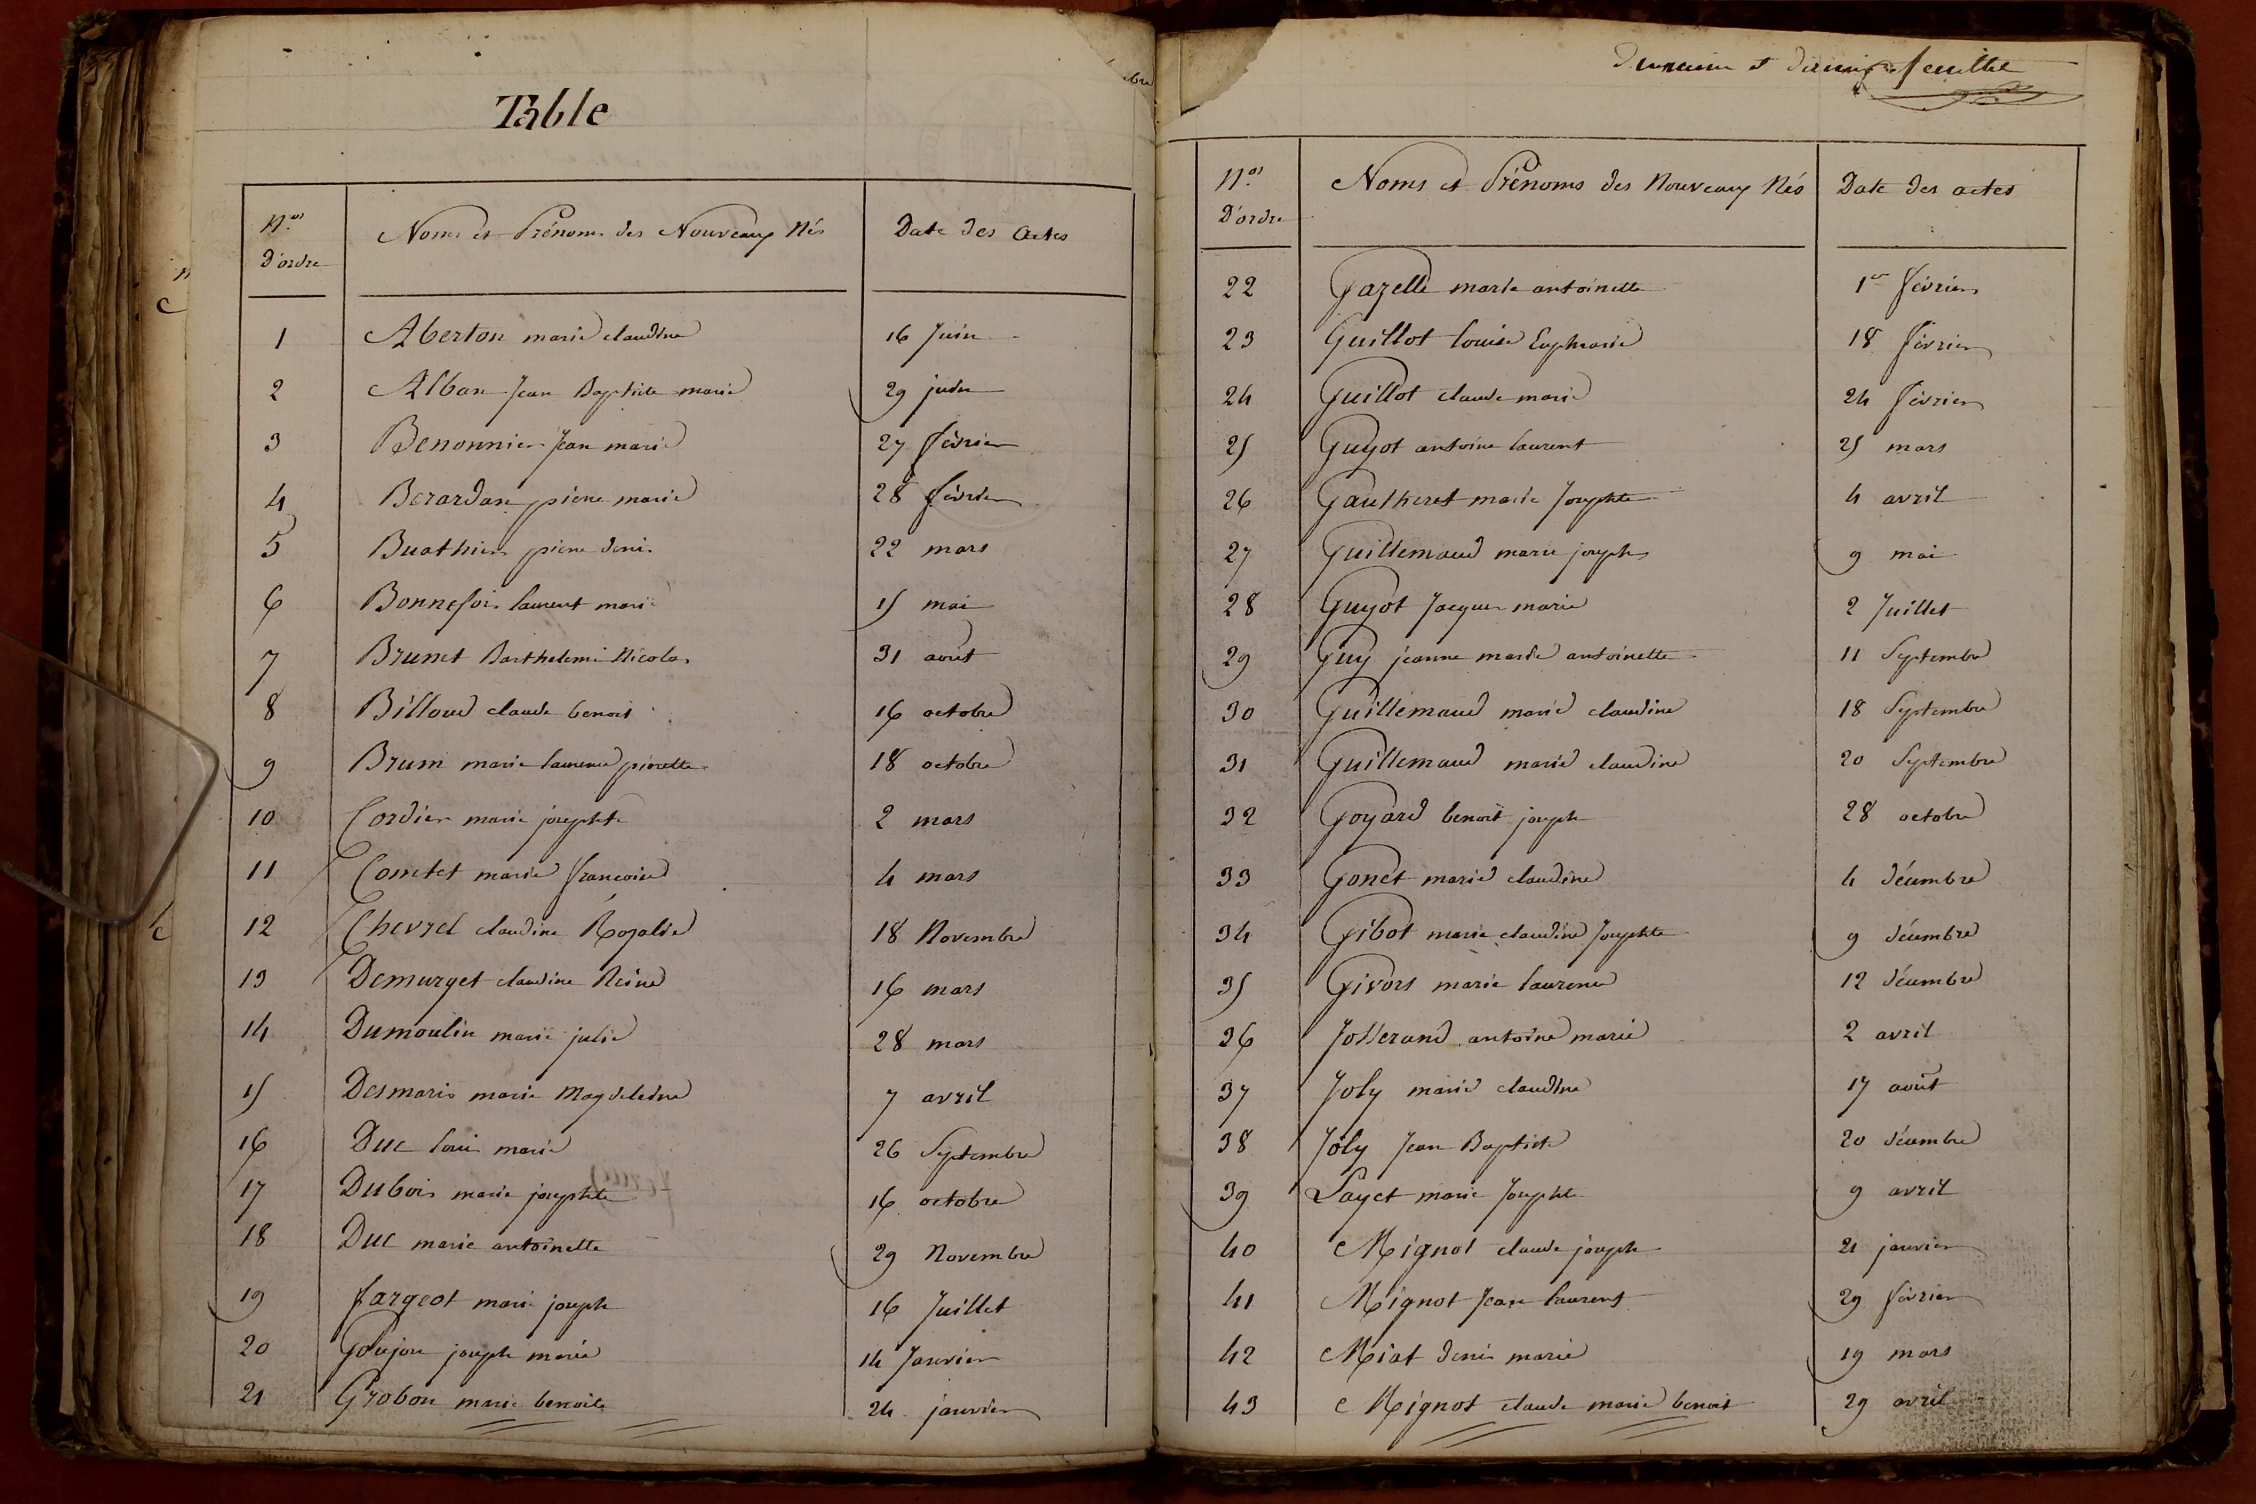 Table
N.os
D'ordre
Noms et Prénoms des Nouveaux Nés
Date des Actes
1 Aberton marie claudine 16 Juin
2 Alban Jean Baptiste marie 29 juin
3 Benonnier Jean marie 27 février
4 Berardan pierre marie 28 février
5 Buathier pierre denis 22 mars
6 Bonnefoi laurent marie 15 mai
7 Brunet Barthelemi Nicolas 31 août
8 Billoud claude benoit 16 octobre
9 Brum marie laurence pierrette 18 octobre
10 Cordier marie josephte 2 mars
11 Comtet marie françoise 4 mars
12 Chevrel claudine Rozalie 18 Novembre
13 Demurget claudine Reine 16 mars
14 Dumoulin marie julie 28 mars
15 Desmaris marie Magdeleine 7 avril
16 Duc louis marie 26 Septembre
17 Dubois marie josephte 16 octobre
18 Duc marie antoinette 29 Novembre
19 fargeot marie joseph 16 Juillet
20 Goujon joseph marie 14 Janvier
21 Grobon marie benoite 24 janvier
et feuillet
N.os
D'ordre
Noms et Prénoms des Nouveaux Nés
Date des actes
22 Gazelle marie antoinette 1er février
23 Guillot louise Euphrasie 18 février
24 Guillot claude marie 24 février
25 Guyot antoine laurent 25 mars
26 Gautheret marie Josephte 4 avril
27 Guillemaud marie joseph 9 mai
28 Guyot Jacques marie 2 Juillet
29 Guy jeanne marie antoinette 11 Septembre
30 Guillemaud marie claudine 18 Septembre
31 Guillemaud marie claudine 20 Septembre
32 Goyard benoit joseph 28 octobre
33 Gonet marie claudine 4 décembre
34 Gibot marie claudine Josephte 9 décembre
35 Givors marie laurence 12 décembre
36 Josserand antoine marie 2 avril
37 Joly marie claudine 17 août
38 Joly Jean Baptiste 20 décembre
39 Layet marie Josephte 9 avril
40 Mignot claude joseph 21 janvier
41 Mignot Jean laurent 29 février
42 Miat denis marie 19 mars
43 Mignot claude marie benoit 29 avril